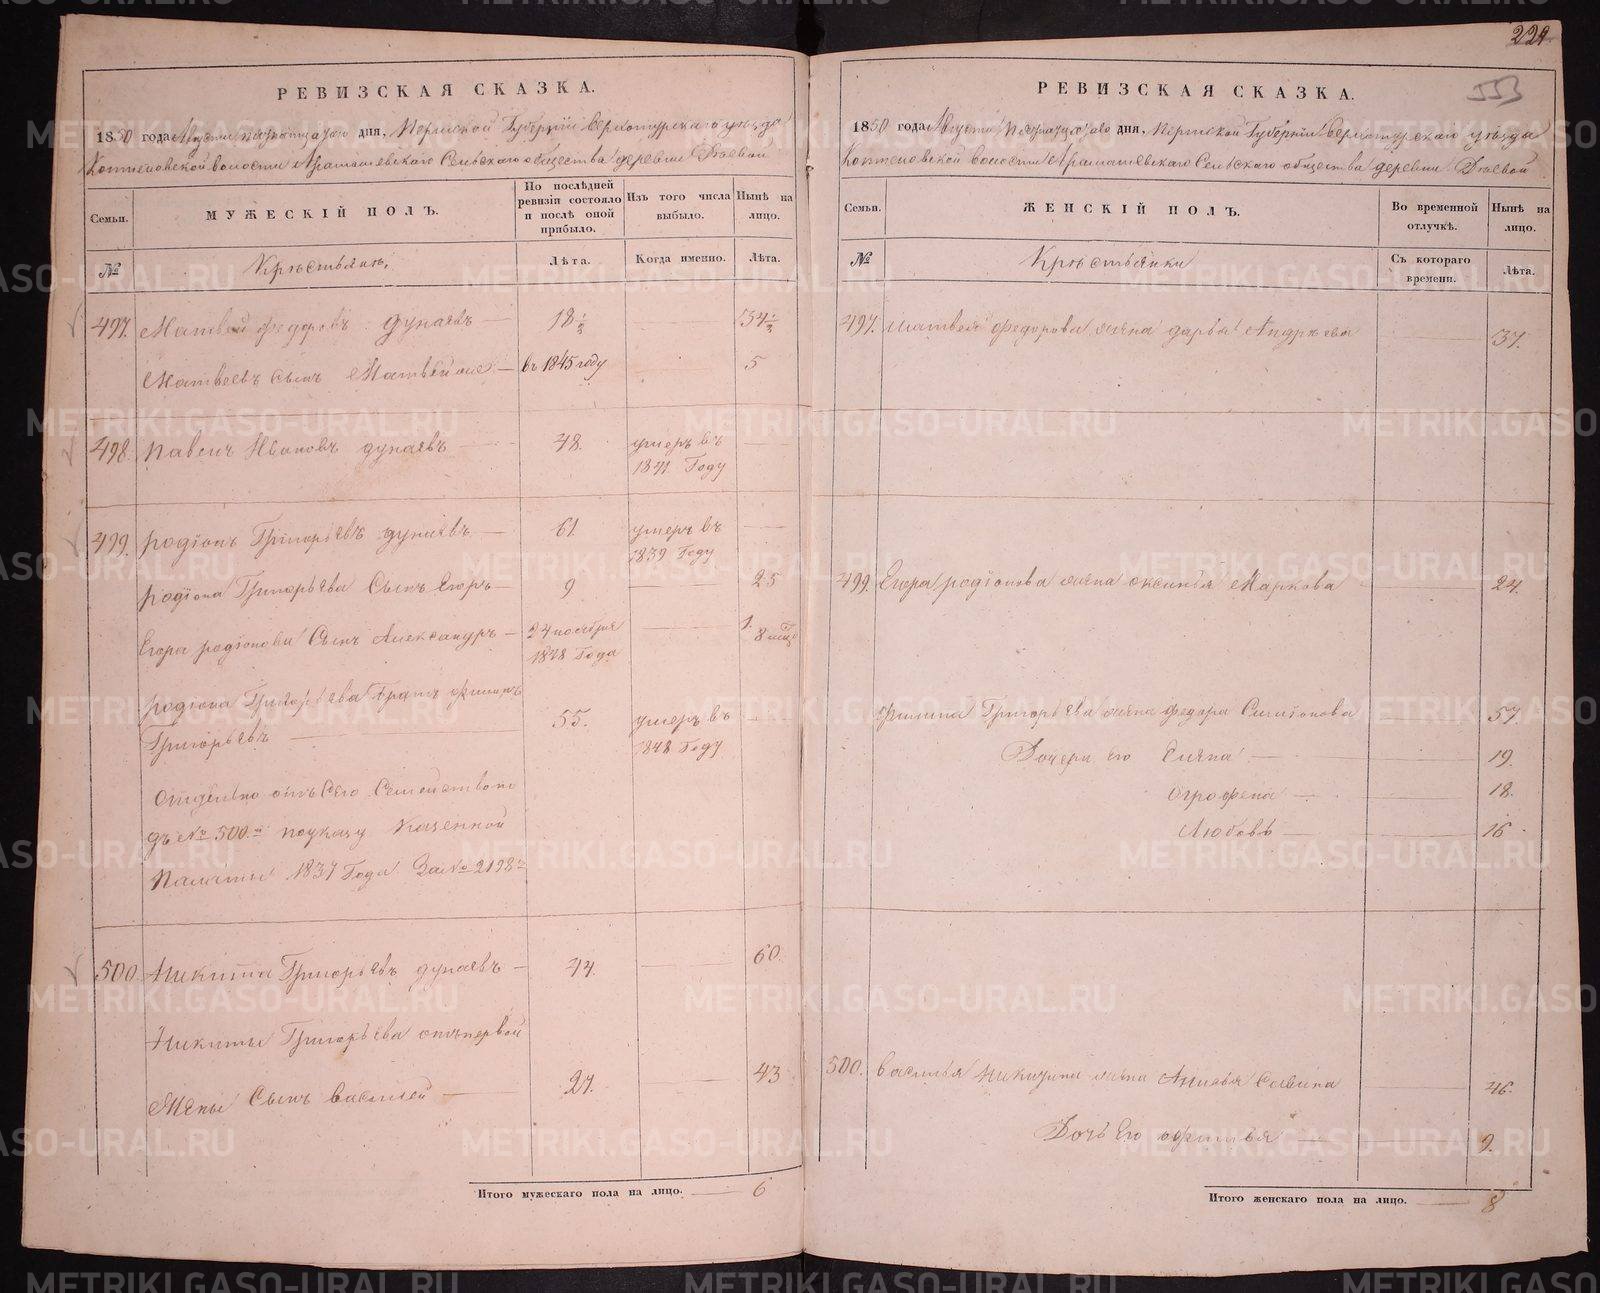 224.
553
РЕВИЗСКАЯ СКАЗКА.
1850 года Августа дня, Пермской Губерніи Верхотурскаго уѣзда
волости Арамашевскаго Сельскаго общества деревни
Семьи.
МУЖЕСКІЙ ПОЛЪ.
По послѣдней ревизіи состояло и послѣ оной прибыло.
Изъ того числа выбыло.
Нынѣ на лицо.
№
Крѣстьянѣ,
Лѣта.
Когда именно.
Лѣта.
497. Матвей Федоровъ Дунаевъ — 18½ 34½
Матвеевъ сынъ — въ 1845 году 5
498. Павелъ Ивановъ дунаевъ 48. умеръ въ
1841 Году
499. родіонъ Григорьевъ дунаевъ — 61. умеръ въ
1839 Году
родіона Григорьева Сынъ Егоръ — 9 25
Егора родіонова Сынъ Александръ — 24 ноября 1.
1848 Года 8 мѣся
родіона Григорьева братъ Филипъ
Григорьевъ 55. умеръ въ
1848 Году
Отдѣльно отъ Сего Семейства по
дъ № 500.м по указу Казенной
Палаты 1837 Года За № 2198
500. Никита Григорьевъ дунаевъ — 44. 60.
Никиты Григорьева отъ первой
Жены Сынъ василей — 27. 43
Итого мужескаго пола на лицо. — 6
РЕВИЗСКАЯ СКАЗКА.
1850 года Августа дня, Пермской Губерніи Верхотурскаго уѣзда
волости Арамашевскаго Сельскаго общества деревни
Семьи.
ЖЕНСКІЙ ПОЛЪ.
Во временной отлучкѣ.
Нынѣ на лицо.
№
Крѣстьянки
Съ котораго времени.
Лѣта.
497. Матвея Федорова жена дарья Андрѣева 37.
499. Егора родіонова жена оксинья Маркова 24.
Филипа Григорьева жена федора Симіонова 57.
Дочери его Елена — 19.
Огрофена — 18.
Любовь — 16.
500. василья Никитина жена Савина 46.
Дочь Его офимья 9.
Итого женскаго пола на лицо. — 8
METRIKI.GASO-URAL.RU